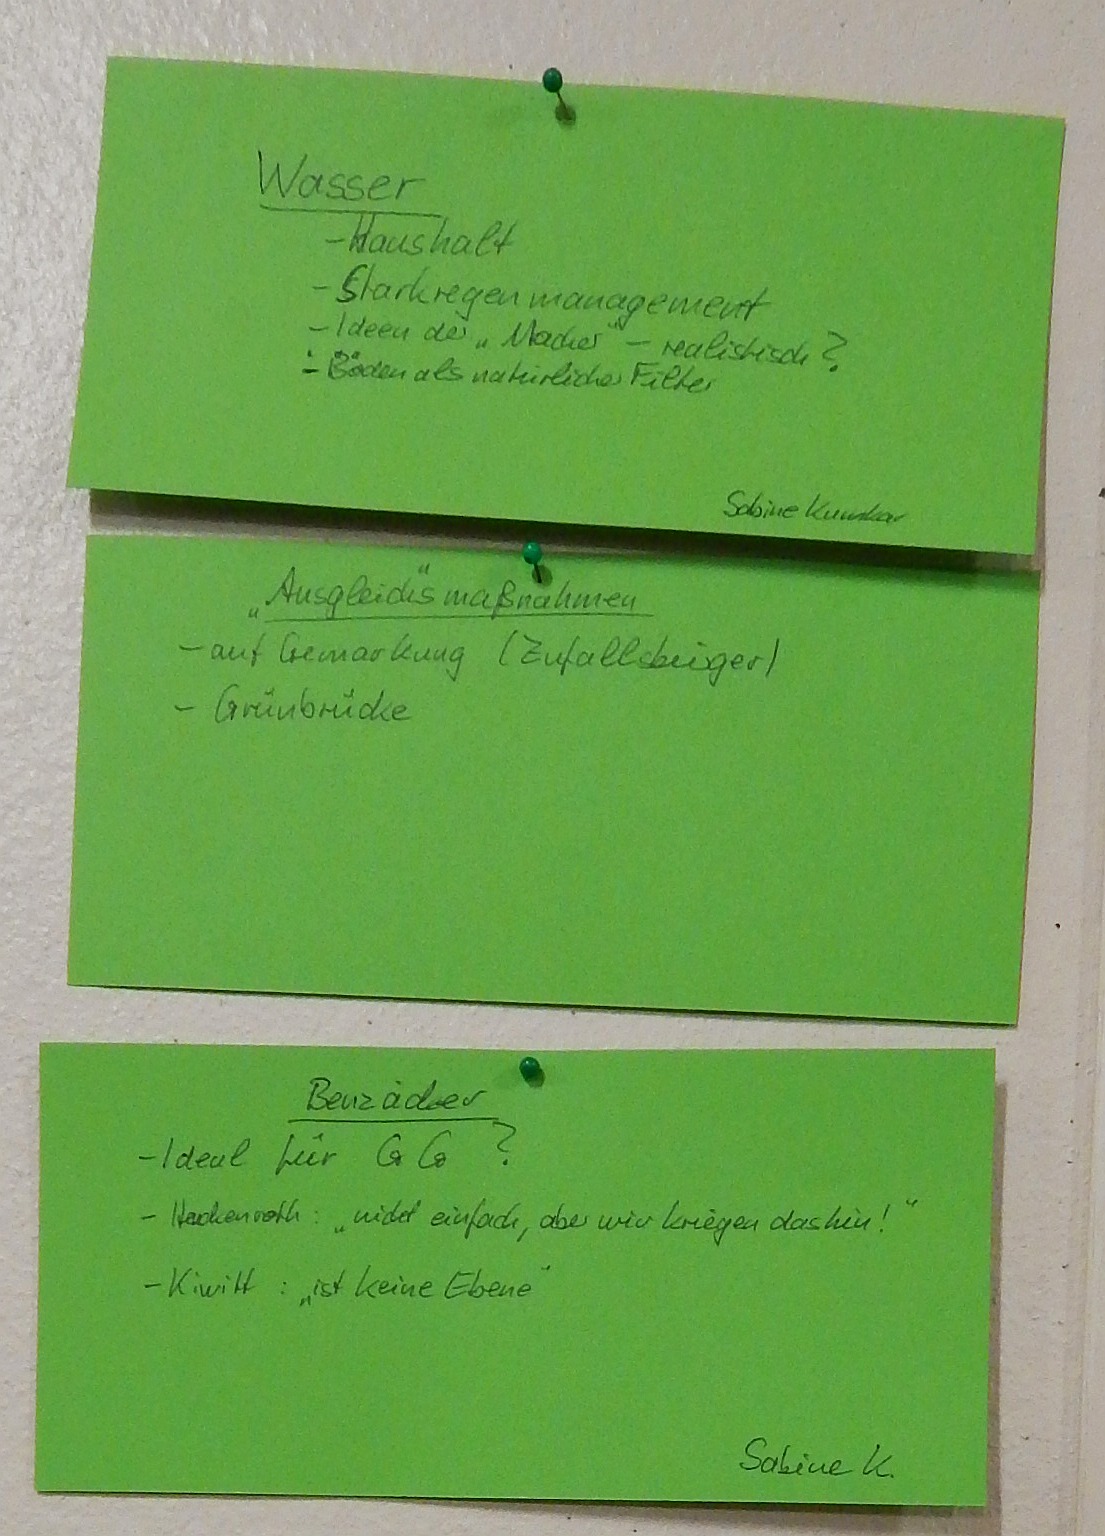 Wasser
- Haushalt
- Starkregenmanagement
- Ideen der „Macher" - realistisch?
- Böden als natürlicher Filter
Sabine
„Ausgleichs"maßnahmen
- auf Gemarkung (Zufallsbürger)
- Grünbrücke
Benzäcker
- Ideal für GG ?
- Hackenroth : „nicht einfach, aber wir kriegen das hin!"
- Kiwitt : „ist keine Ebene"
Sabine K.